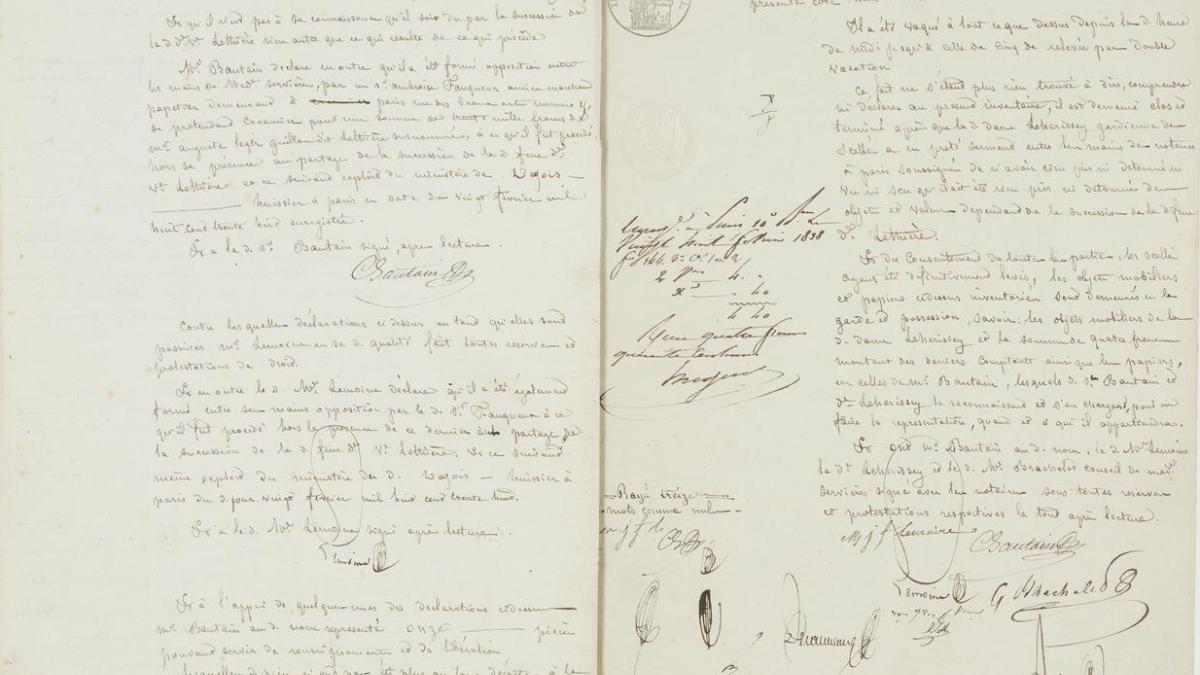 Et qu'il n'est pas à sa connaissance qu'il soit dû par la succession de
la d. dme Ve Lethière rien autre que ce qui resulte de ce qui précède
Mr. Bautain déclare en outre qu'il a été formé opposition entre
les mains de Made. Servières, par un sr. ambroise Fauqueux ancien marchand
papetier demeurant à paris rue des beaux arts numero
se prétendant creancier pour une somme de trente mille francs de
mr. auguste leger guillon dit Lethière susnommé, à ce qu'il fut procédé
hors sa présence au partage de la succession de la d. feue de.
Ve Lethière et ce suivant exploit du ministère de Wajois
huissier à paris en date du vingt février mil
huit cent trente huit enregistré.
Et a le d. sr. Bautain signé, après lecture.
CBautain
Contre lesquelles déclarations ci dessus, en tant qu'elles sont
passives mr. Lemoine en se d. qualité fait toutes reserves et
protestations de droit.
Et en outre le d. Mr. Lemoine déclare qu'il a été également
formé entre ses mains opposition par le d. Sr. Fauqueux à ce
qu'il fut procédé hors la presence de ce dernier au partage de
la succession de la d. feue de. Ve. Lethière. Et ce suivant
même exploit du ministère du d. Wajois huissier à
paris du d. jour vingt février mil huit cent trente huit.
Et a le d. Mr. Lemoine signé après lecture.
Lemoine
Et à l'appui de quelques unes des déclarations cidessus
mr. Bautain au d. nom représenté onze pièces
pouvant servir de renseignements et de libération
Il a été vaqué à tout ce que dessus depuis la d. heure
de midi jusqu'à celle de cinq de relevée par double
vacation
Ce fait ne s'étant plus rien trouvé à dire, comprendre
ni déclarer au présent inventaire, il est demeuré clos et
terminé après que la d. dame Leherissey gardienne des
Scellés a en prêté serment entre les mains des notaires
à paris soussignés de n'avoir rien pris ni detourné en
vu ni su qu'il ait été rien pris ni detourné des
objets et valeurs dépendant de la succession de la d. feue
de. Lethière.
Et du Consentement de toutes les parties, les scellés
ayant été définitivement levés, les objets mobiliers
et papiers cidessus inventoriés sont demeurés en la
garde et possession, savoir: les objets mobiliers de la
d. dame Leherissey et la somme de quatre francs
montant des deniers comptants ainsi que les papiers,
en celles de mr. Bautain, lesquels d. Sr. Bautain et
de. Leherissey le reconnaissent et s'en chargent, pour en
faire la représentation, quand et à qui il appartiendra.
Et ont mr. Bautain au d. nom, le d. Mr Lemoine
la de Leherissey et le d. Mr. Brachelet conseil de made.
Servières signé avec les notaires sous toutes reserves
et protestations respectives le tout après lecture.
Mjf Lemaire CBautain
Lemoine
Vingt huit février 1838
2 4.
40
4 40
Reçu quatre francs
quarante centimes
Rayé treize
mots comme nuls